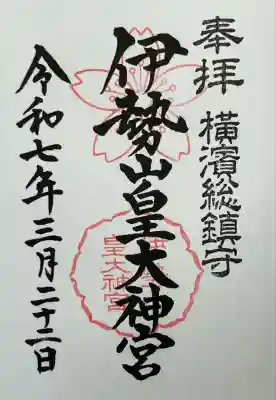 奉拝 横濱総鎮守
伊勢山皇大神宮
令和七年三月二十二日